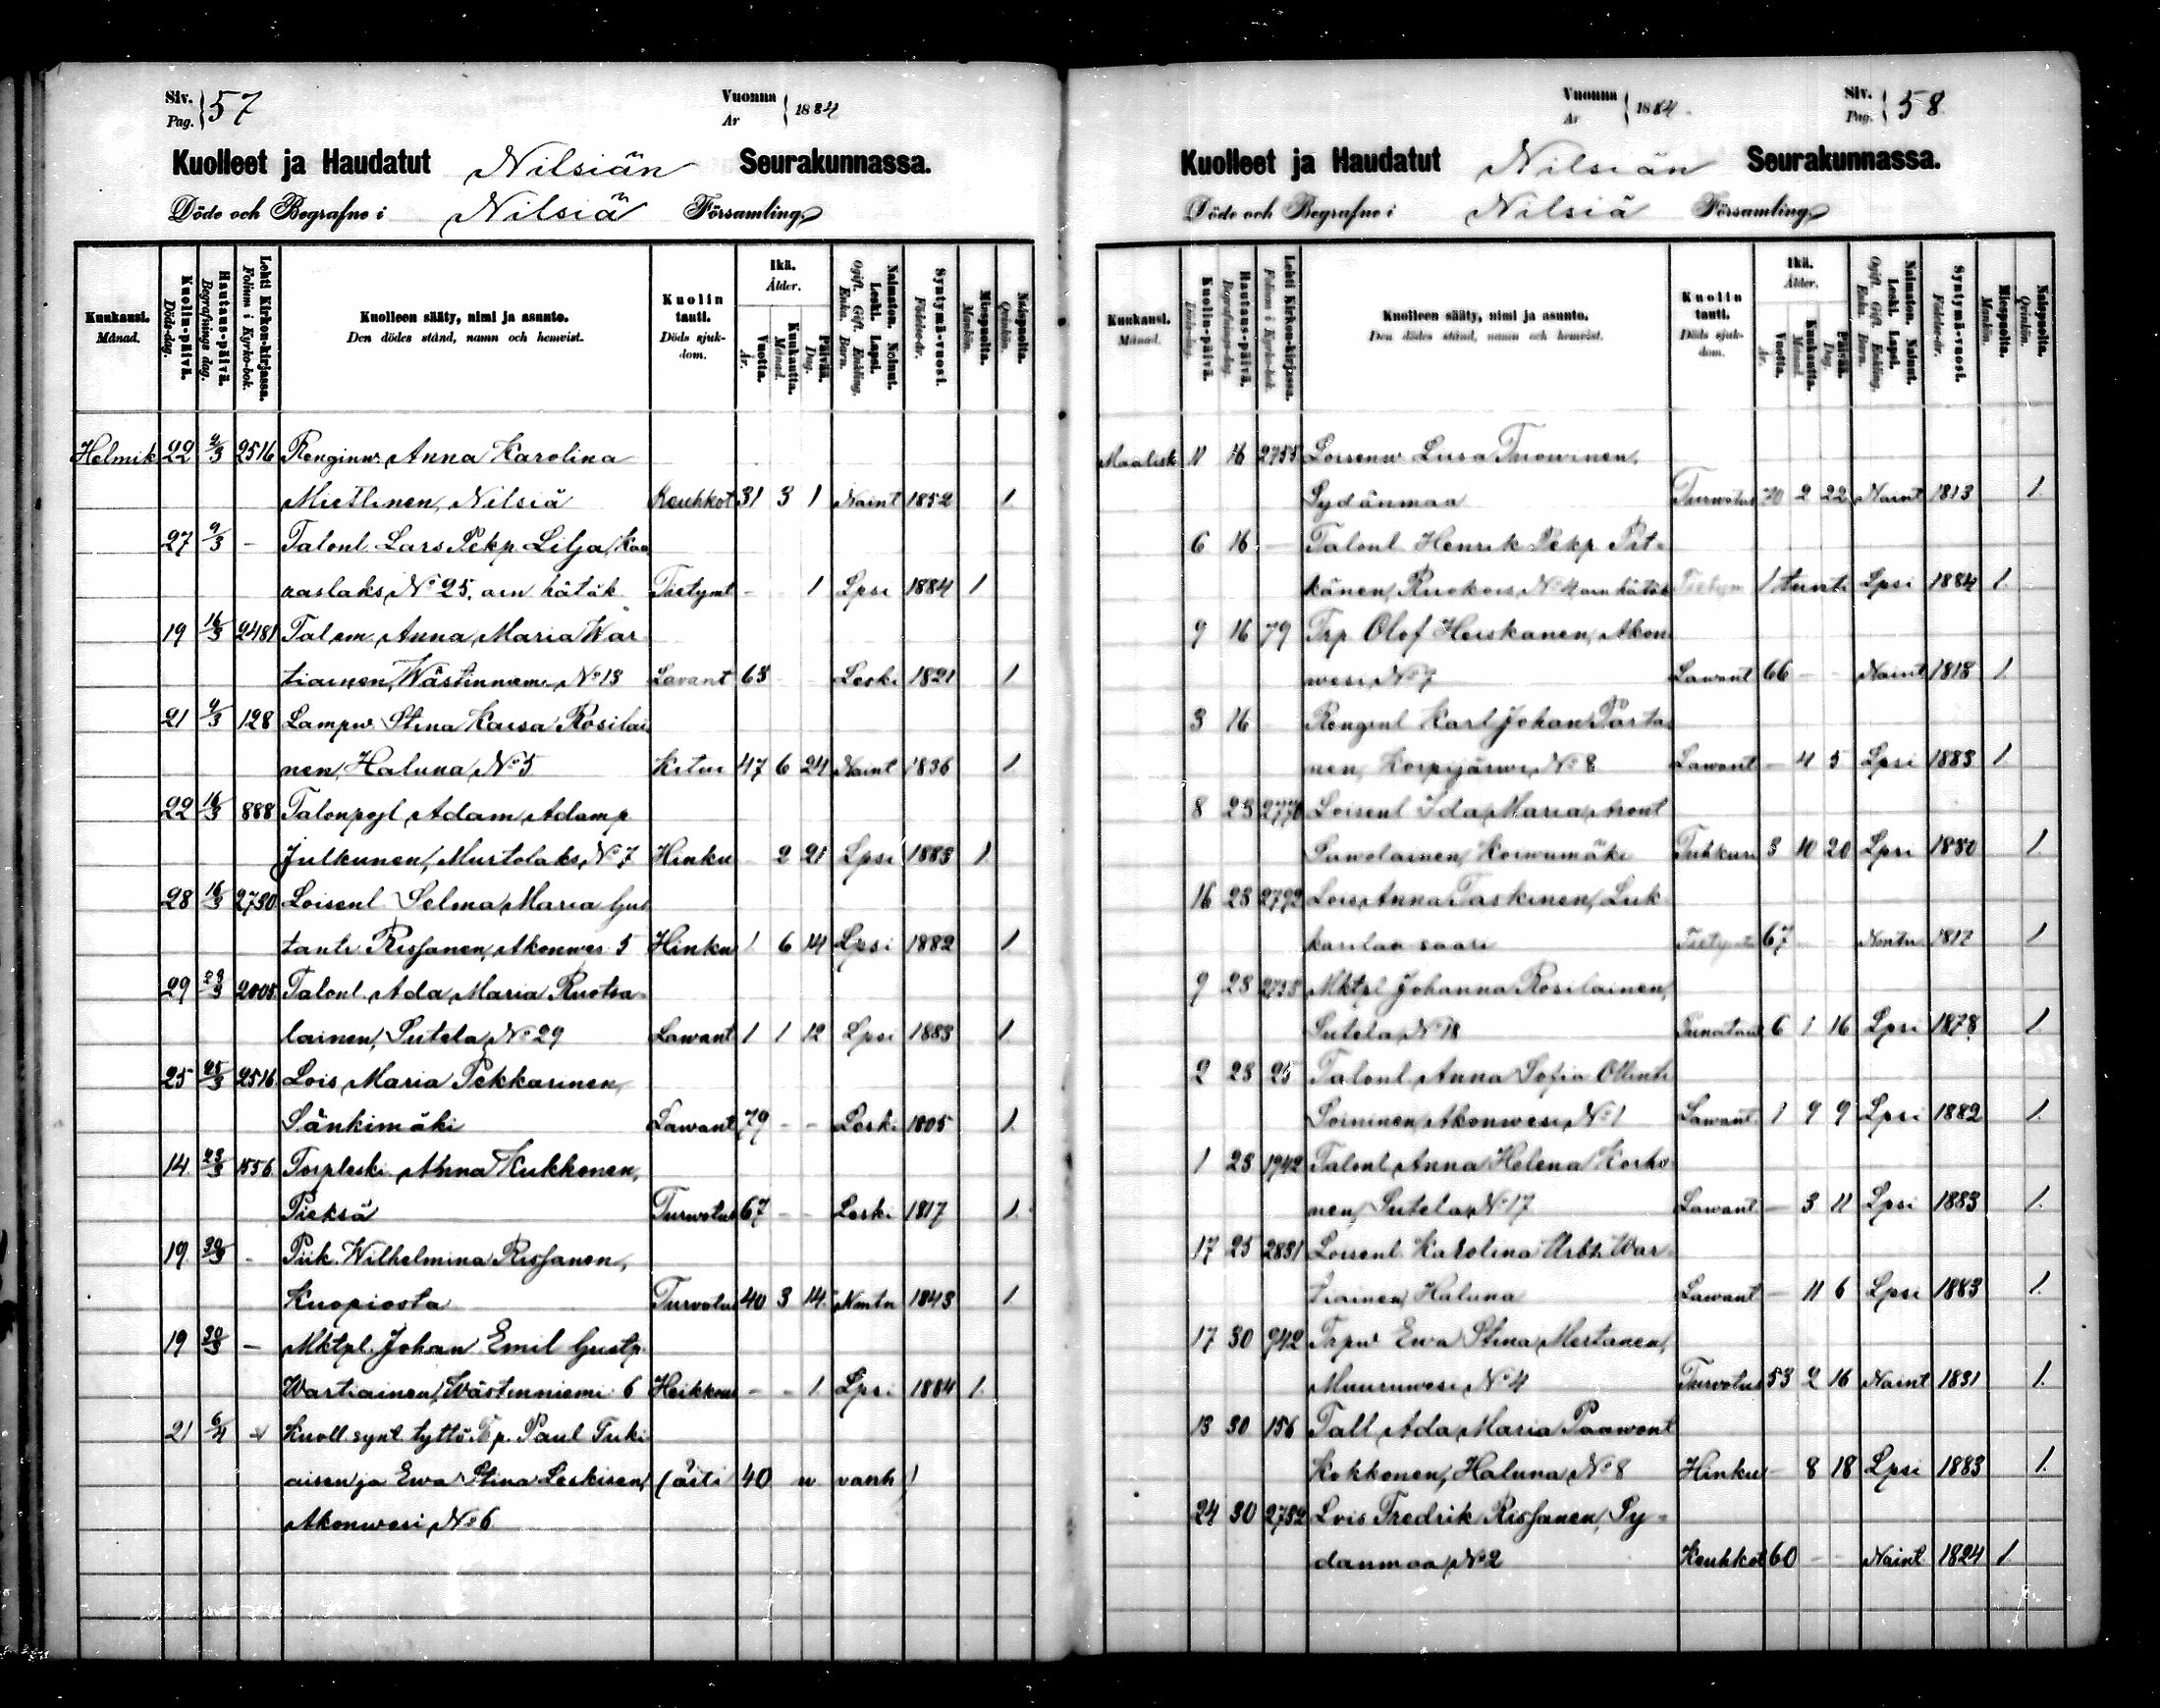 Siv. Pag. 57 Vuonna År 1884
Kuolleet ja Haudatut Nilsiän Seurakunnassa.
Döde och Begrafne i Nilsiä Församling
Kuukausi. Månad. Kuolin-päivä. Döds-dag. Hautaus-päivä. Begrafnings dag. Lehti Kirkon-kirjassa. Folium i Kyrko-bok. Kuolleen sääty, nimi ja asunto. Den dödes stånd, namn och hemvist. Kuolin tauti. Döds sjuk-dom. Ikä. Ålder. Vuotta. År. Kuukautta. Månad. Päivää. Dag. Naimaton. Nainut. Leski. Lapsi. Ogift. Gift. Enkling. Enka. Barn. Syntymä-vuosi. Födelse-år. Miespuolia. Mankön. Naispuolia. Qvinkön.
Helmik 22 9/3 2516 Renginw. Anna Karolina
Miettinen, Nilsiä Keuhkot 31 3 1 Naint 1852 1.
27 9/3 - Talonl Lars Pekp Lilja, Kaa
raslaks, No 25. am hätäk Tietymt - - 1 Lpsi 1884 1
19 16/3 2481 Talem Anna Maria War
tiainen, Wästinniem. No 13 Lavant 63 Leski 1821 1
21 9/3 128 Lampw Stina Kaisa Rosilai
nen, Haluna, No 5 Kitu 47 6 24 Naint 1836 1.
22 16/3 888 Talonpojl Adam Adamp
Julkunen, Murtolaks, No 7 Hinku - 2 21 Lpsi 1883 1.
28 16/3 2730 Loisenl Selma Maria Gus
tantr Rissanen, Akonwes 5 Hinku 1 6 14 Lpsi 1882 1.
29 23/3 2005 Talonl Ada Maria Ruotsa
lainen, Sutela, No 29 Lawant 1 1 12 Lpsi 1883 1.
25 25/3 2516 Lois Maria Pekkarinen,
Sänkimäki Lawant 79 - - Leski 1805 1.
14. 23/3 1556 Torpleski Anna Kukkonen,
Pieksä Turwotus 67 - - Leski 1817 1.
19. 30/3 - Piik. Wilhelmina Rissanen,
Kuopiosta Turvotus 40 3 14. Nmtn 1843 1.
19 30/3 - Mktpl. Johan Emil Gustp.
Wartiainen, Wästinniemi 6 Heikkous - - 1 Lpsi 1884 1.
21 6/4 Kuoll. synt. tyttö Tp. Paul Tuki
aisen ja Ewa Stina Leskisen, (äiti 40 w vanh)
Akonwesi, No 6.
Vuonna År 1884. Siv. Pag. 58
Kuolleet ja Haudatut Nilsiän Seurakunnassa.
Döde och Begrafne i Nilsiä Församling
Kuukausi. Månad. Kuolin-päivä. Döds-dag. Hautaus-päivä. Begrafnings-dag. Lehti Kirkon-kirjassa. Folium i Kyrko-bok. Kuolleen sääty, nimi ja asunto. Den dödes stånd, namn och hemvist. Kuolin tauti. Döds sjuk-dom. Ikä. Ålder. Vuotta. År. Kuukautta. Månad Päivää. Dag. Naimaton. Nainut. Leski. Lapsi. Ogift. Gift. Enkling. Enka. Barn. Syntymä-vuosi. Födelse-år. Miespuolia. Mankön. Naispuolia. Qvinkön.
Maalisk 11 16 2755 Loisenw Liisa Tuowinen,
Sydänmaa Turwotus 70 2 22 Naint 1813 1.
6 16 - Talonl Henrik Pekp Pit-
känen, No 4, am hätäk 1 tunti Lpsi 1884 1.
9 16 79 Trp Olof Heiskanen, Akon
wesi, No 7 Lawant 66 - - Naint 1818 1.
3 16 Rengml Karl Johan Parta
nen, Korpijärwi, No 8 Lawant - 4 5 Lpsi 1883 1.
8 23 2770 Loisenl Ida Maria
Sawolainen, Koiwumäki Tuhkari 3 10 20 Lpsi 1880 1.
16 23 2792 Lois Anna Taskinen, Luk
karilan saari 67 Nmtn 1817 1
9 23 2738 Mktpl Johanna Rosilainen,
Sutela, No 18 Punataut 6 1 16 Lpsi 1878 1.
2 23 25 Talonl Anna Sofia Ollintr
Soininen, Akonwesi, No 1 Lawant 1 9 9 Lpsi 1882 1.
1 23 1942 Talonl Anna Helena Korho
nen, Sutela, No 17 Lawant - 3 11 Lpsi 1883 1.
17 25 2831 Loisenl Karolina War
tiainen, Haluna Lawant - 11 6 Lpsi 1883 1.
17 30 942 Trpw Ewa Stina Mertanen,
Muuruwesi No 4 Turvotus 53 2 16 Naint 1831 1.
13 30 156 Tall Ada Maria Paawont
Kokkonen, Haluna No 8 Hinku - 8 18 Lpsi 1883 1.
24 30 2782 Lois Fredrik Rissanen, Sy-
dänmaa, No 2 Keuhkot 60 - - Naint 1824 1.